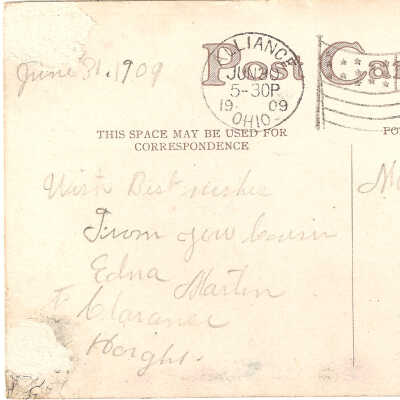 Post Car
June 31. 1909
ALLIANCE
JUN 30
5-30P
19 09
OHIO
THIS SPACE MAY BE USED FOR
CORRESPONDENCE
PO
With Best wishes
From your cousin
Edna Martin
&
Clarance
Hoight.